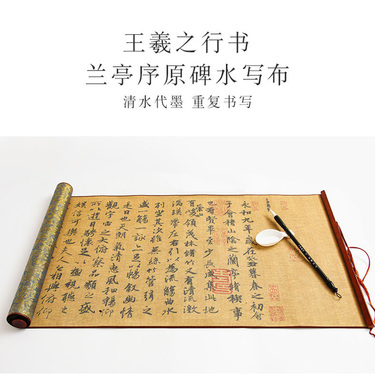 王羲之行书
兰亭序原碑水写布
清水代墨 重复书写
永和九年歲在癸丑暮春之初會
于會稽山陰之蘭亭脩稧事
也羣賢畢至少長咸集此地
有崇山峻領茂林脩竹又有清流激
湍暎帶左右引以為流觴曲水
列坐其次雖無絲竹管弦之
盛一觴一詠亦足以暢敘幽情
是日也天朗氣清惠風和暢仰
觀宇宙之大俯察品類之盛
所以遊目騁懷足以極視聽之
娛信可樂也夫人之相與俯仰